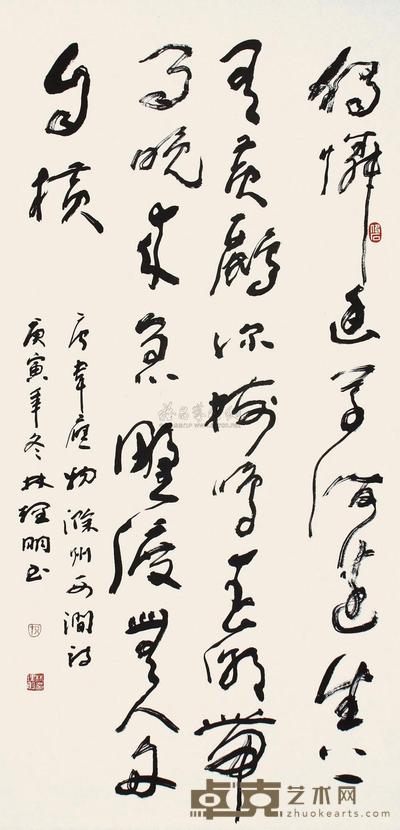 獨憐幽草澗邊生上
有黄鸝深樹鳴春潮帶
雨晚来急野渡無人舟
自横
唐韋應物滁州西澗詩
庚寅年冬林理明书
卓克艺术网
www.zhuokearts.com